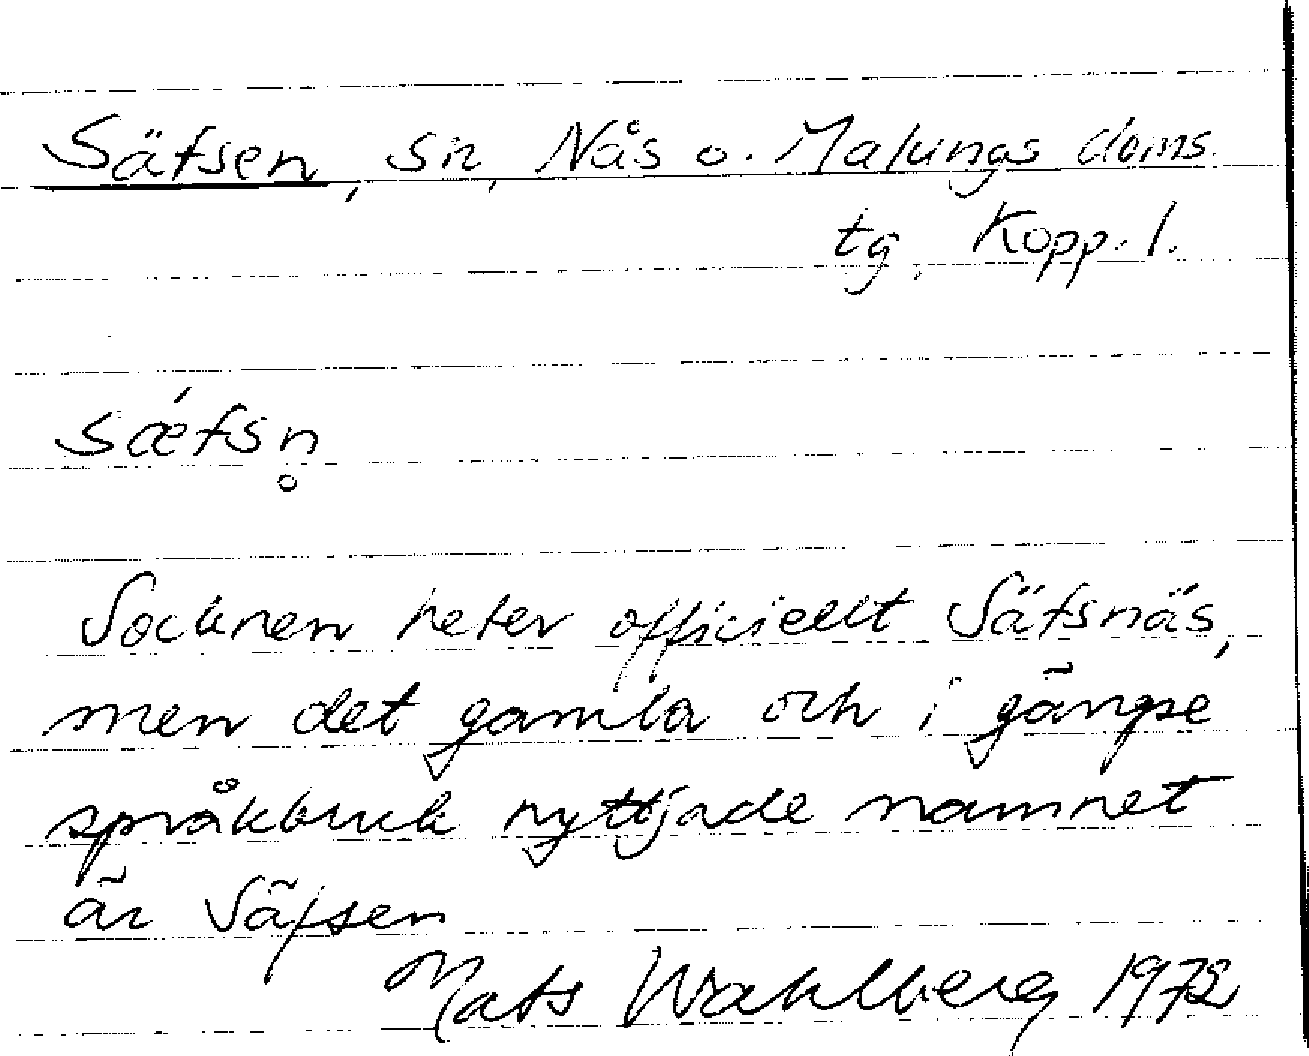 Säfsen, sn, Nås o. Malungs doms.
tg, Kopp. l.
sǽfsn̥
Socknen heter officiellt Säfsnäs,
men det gamla och i gängse
språkbruk nyttjade namnet
är Säfsen
Mats Wahlberg 1972